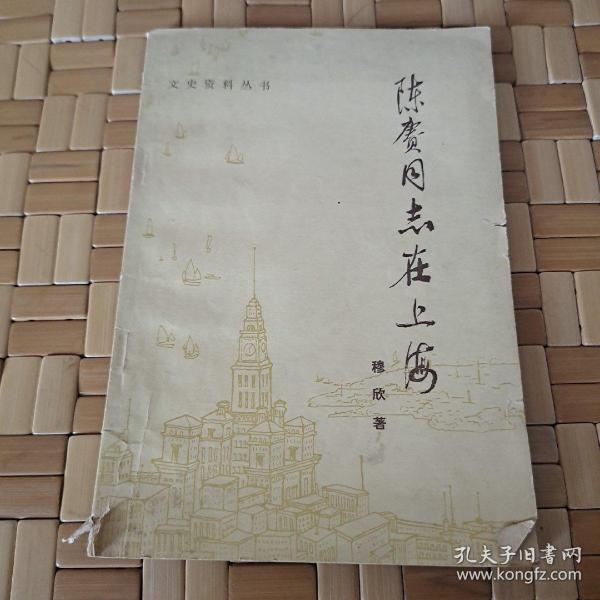 文史资料丛书
陈赓同志在上海
穆欣著
孔夫子旧书网
www.kongfz.com